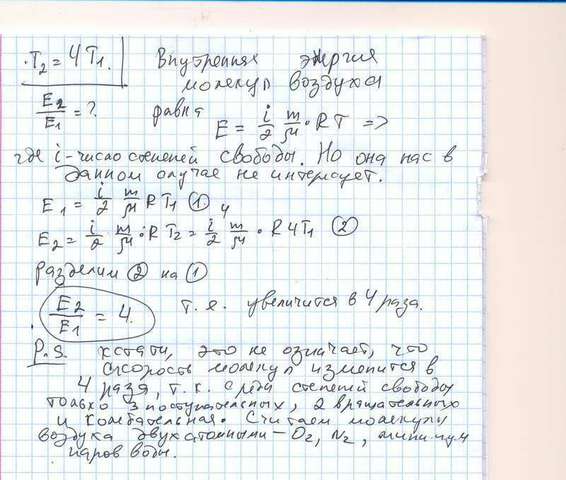 T₂ = 4T₁. Внутренняя энергия
молекул воздуха
E₂/E₁ = ? равна E = i/2 m/μ · RT =>
где i - число степеней свободы. Но она нас в
данном случае не интересует.
E₁ = i/2 m/μ RT₁ ① и
E₂ = i/2 m/μ · RT₂ = i/2 m/μ · R4T₁ ②
Разделим ② на ①
E₂/E₁ = 4. т.е. увеличится в 4 раза.
P.S. Кстати, это не означает, что
скорость молекул изменится в
4 раза, т.к. среди степеней свободы
только 3 поступательных, 2 вращательных
и колебательная. Считаем молекулы
воздуха двухатомными - O₂, N₂, минимум
паров воды.